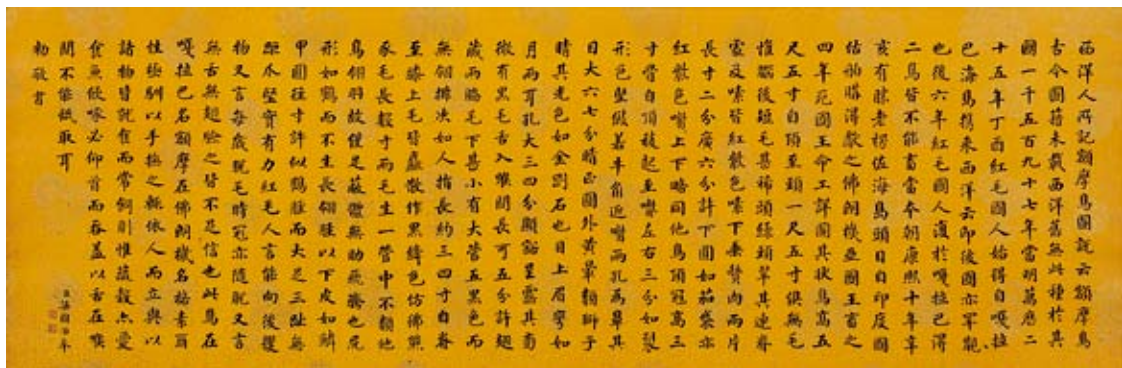 西洋人所記額摩鳥圖說云額摩鳥
古今圖籍未載西洋舊無此種於其
國一千五百九十七年當明萬曆二
十五年丁酉紅毛國人始得自嘎拉
巴海島攜來西洋云即彼國亦罕覯
也後六年紅毛國人復於嘎拉巴得
二鳥皆不能畜當本朝康熙十年辛
亥有賕老楞佐海島頭目自印度國
估舶購得獻之佛朗機亞國王畜之
四年死國王命工詳圖其狀鳥高五
尺五寸自頂至頸一尺五寸俱無毛
惟腦後短毛甚稀頭綠頸翠其連脊
處及嗉皆紅殷色嗉下垂贅肉兩片
長寸二分廣六分許下圓如茄袋亦
紅殷色嘴上下略同他鳥頂冠高三
寸骨自頂棱起至嘴左右三分如裂
形色堅緻若牛角近嘴兩孔為鼻其
目大六七分睛正圓外黃暈類獅子
睛其光色如金剛石也目上眉彎如
月兩耳孔大三四分顯豁呈露其旁
微有黑毛舌入喉間長可五分許翅
藏兩腋毛下甚小有大管五黑色而
無翎擗決如人指長約三四寸自脊
至膝上毛皆鬖散作黑絳色仿佛熊
豕毛長數寸兩毛生一管中不類他
鳥翎羽故僅足蔽體無助飛騰也尾
形如鶴而不生長翎脛以下皮如鱗
甲圍徑寸許似鶴脛而大足三趾無
距爪堅實有力紅毛人言能向後攫
物又言每歲脫毛時冠亦隨脫又言
無舌無翅驗之皆不足信也此鳥在
嘎拉巴名額摩在佛朗機名格素爾
性極馴以手撫之輒依人而立與以
諸物皆就食而常飼則惟蔬穀亦愛
食魚飲啄必仰首而吞蓋以舌在喉
間不能舐取耳
勅敬書